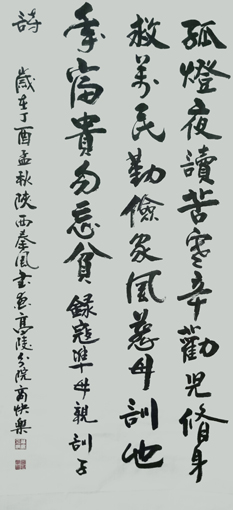 孤燈夜讀苦寒辛勸兒脩身
救萬民勤儉家風慈母訓他
年富貴勿忘貧錄寇準母親訓子
詩 歲在丁酉孟秋陝西秦風書畫高陵分院商快樂